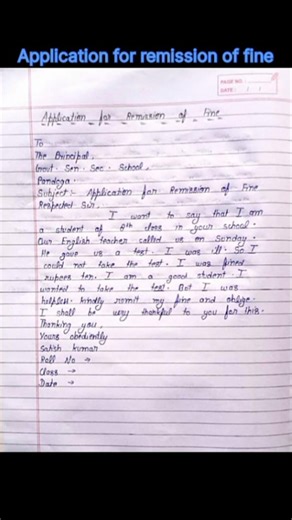 Application for remission of fine
PAGE NO.
DATE: / /
Application for Remission of Fine
To
The Principal,
Govt. Sen. Sec. School,
Pandoga.
Subject:- Application for Remission of Fine
Respected Sir,
I want to say that I am
a student of 6th class in your school.
Our English teacher called us on Sunday.
He gave us a test. I was ill. So I
could not take the test. I was fined
rupees ten. I am a good student. I
wanted to take the test. But I was
helpless. kindly remit my fine and oblige.
I shall be very thankful to you for this.
Thanking you,
Yours obediently
Satish kumar
Roll No →
Class →
Date →